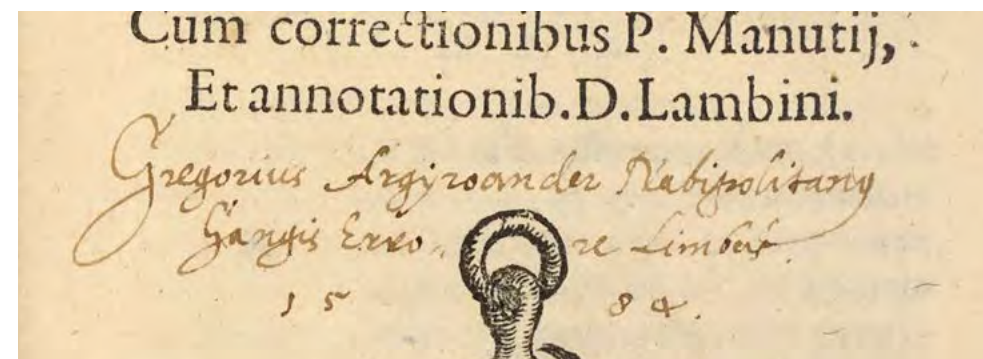 Cum correctionibus P. Manutij,
Et annotationib. D. Lambini.
Gregorius Argyroander Nabipolitanus
re Limbus.
15 84.